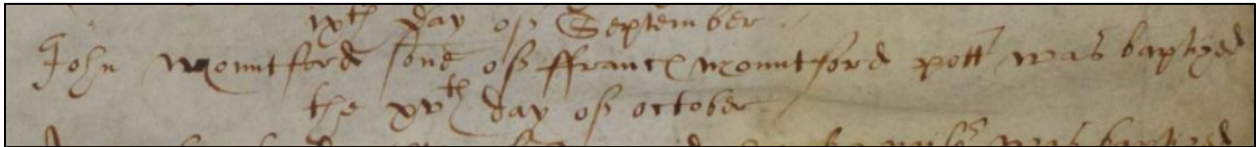 ixth day of September
John Mountford sone of ffrancs Mountford pott was baptyzed
the xvth day of october
was baptized